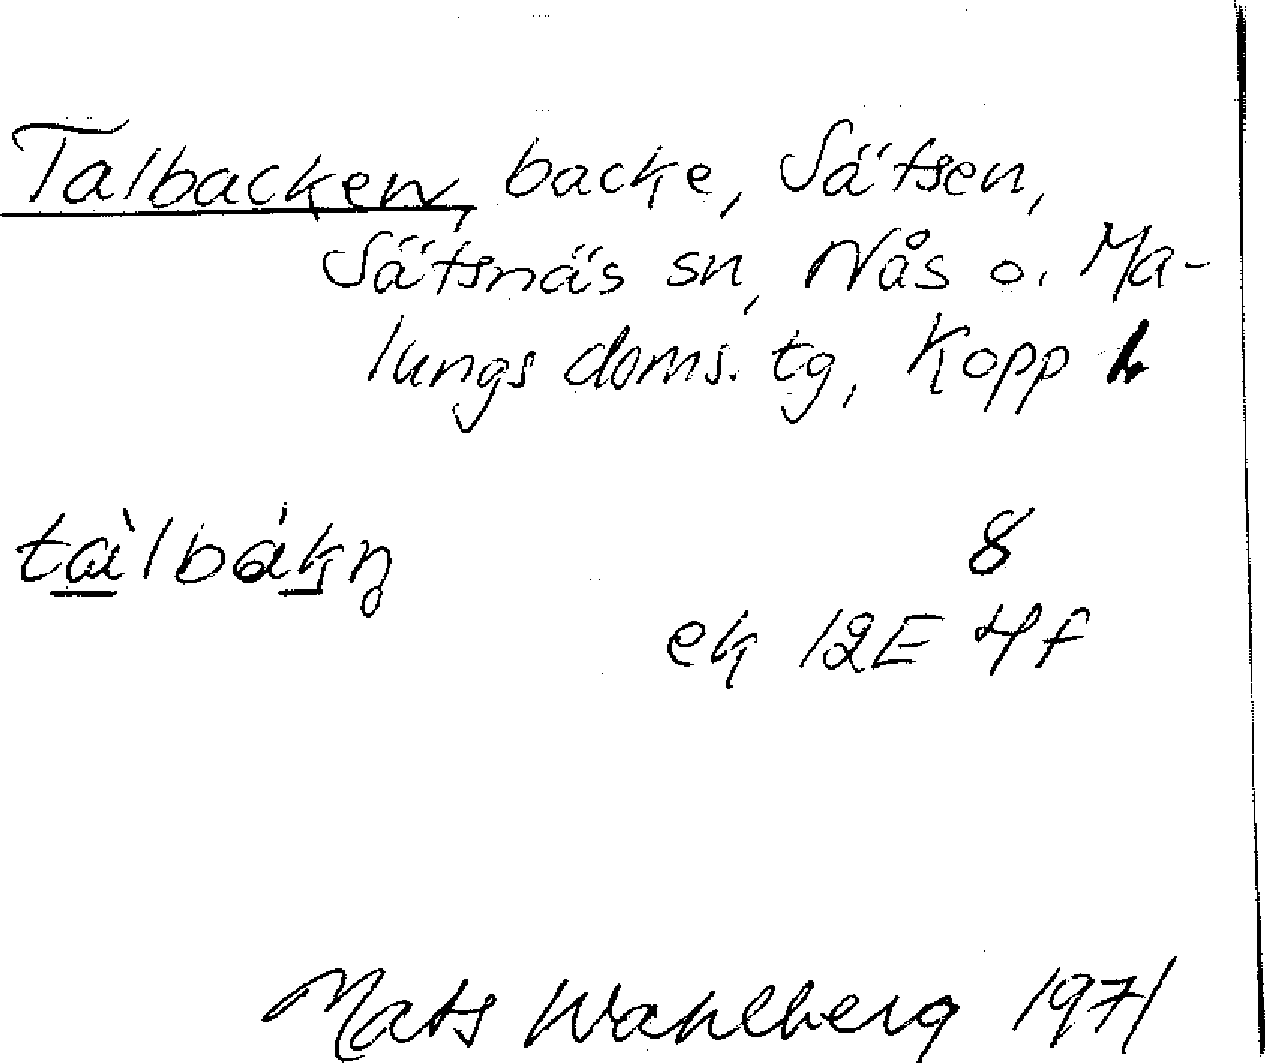 Talbacken, backe, Sätsen,
Sätsnäs sn, Nås o. Ma-
lungs doms. tg, Kopp
tàlbákn̥
8
ek 12E 4f
Mats Wahlberg 1971